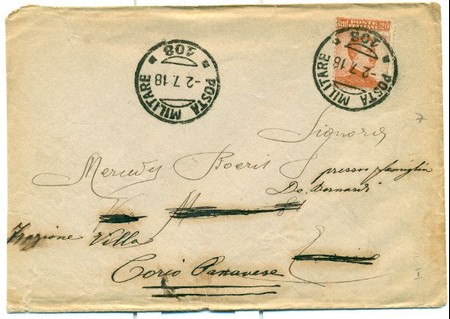 POSTA MILITARE
108
-2.7.18
POSTA MILITARE
108
-2.7.18
Signora
Mercedes
presso famiglia
De Bernardi
Frazione Villa
Corio Canavese